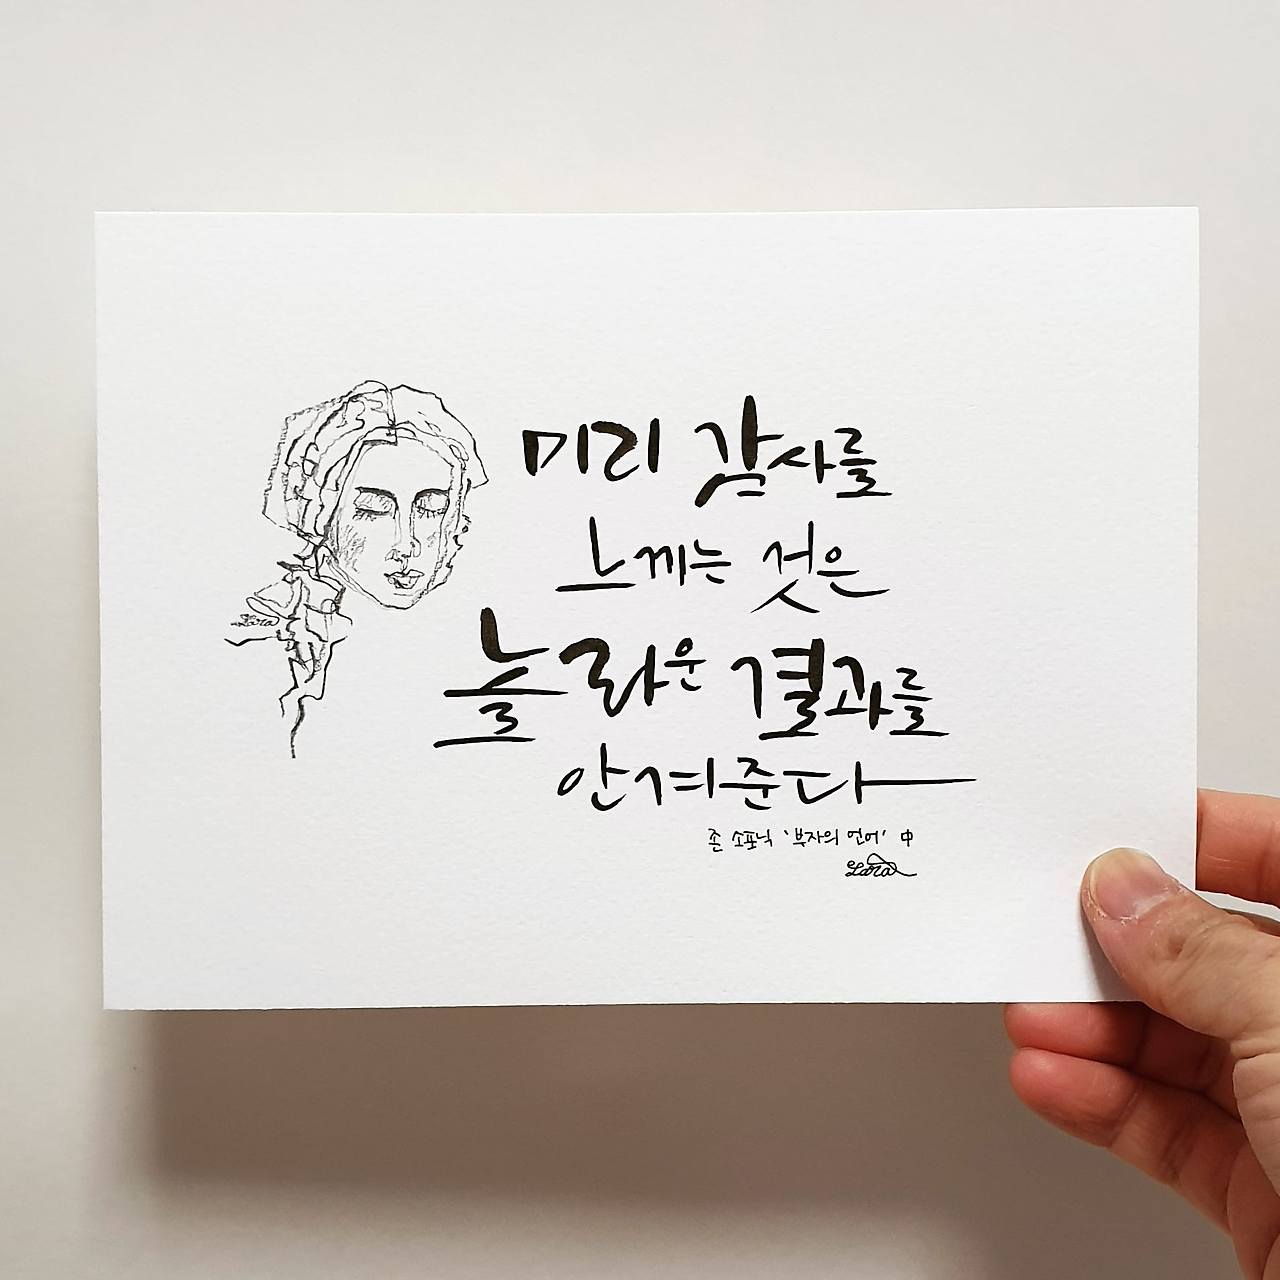 미리 감사를
느끼는 것은
놀라운 결과를
안겨준다
존 소포닉 '부자의 언어' 中
Lara
Lara